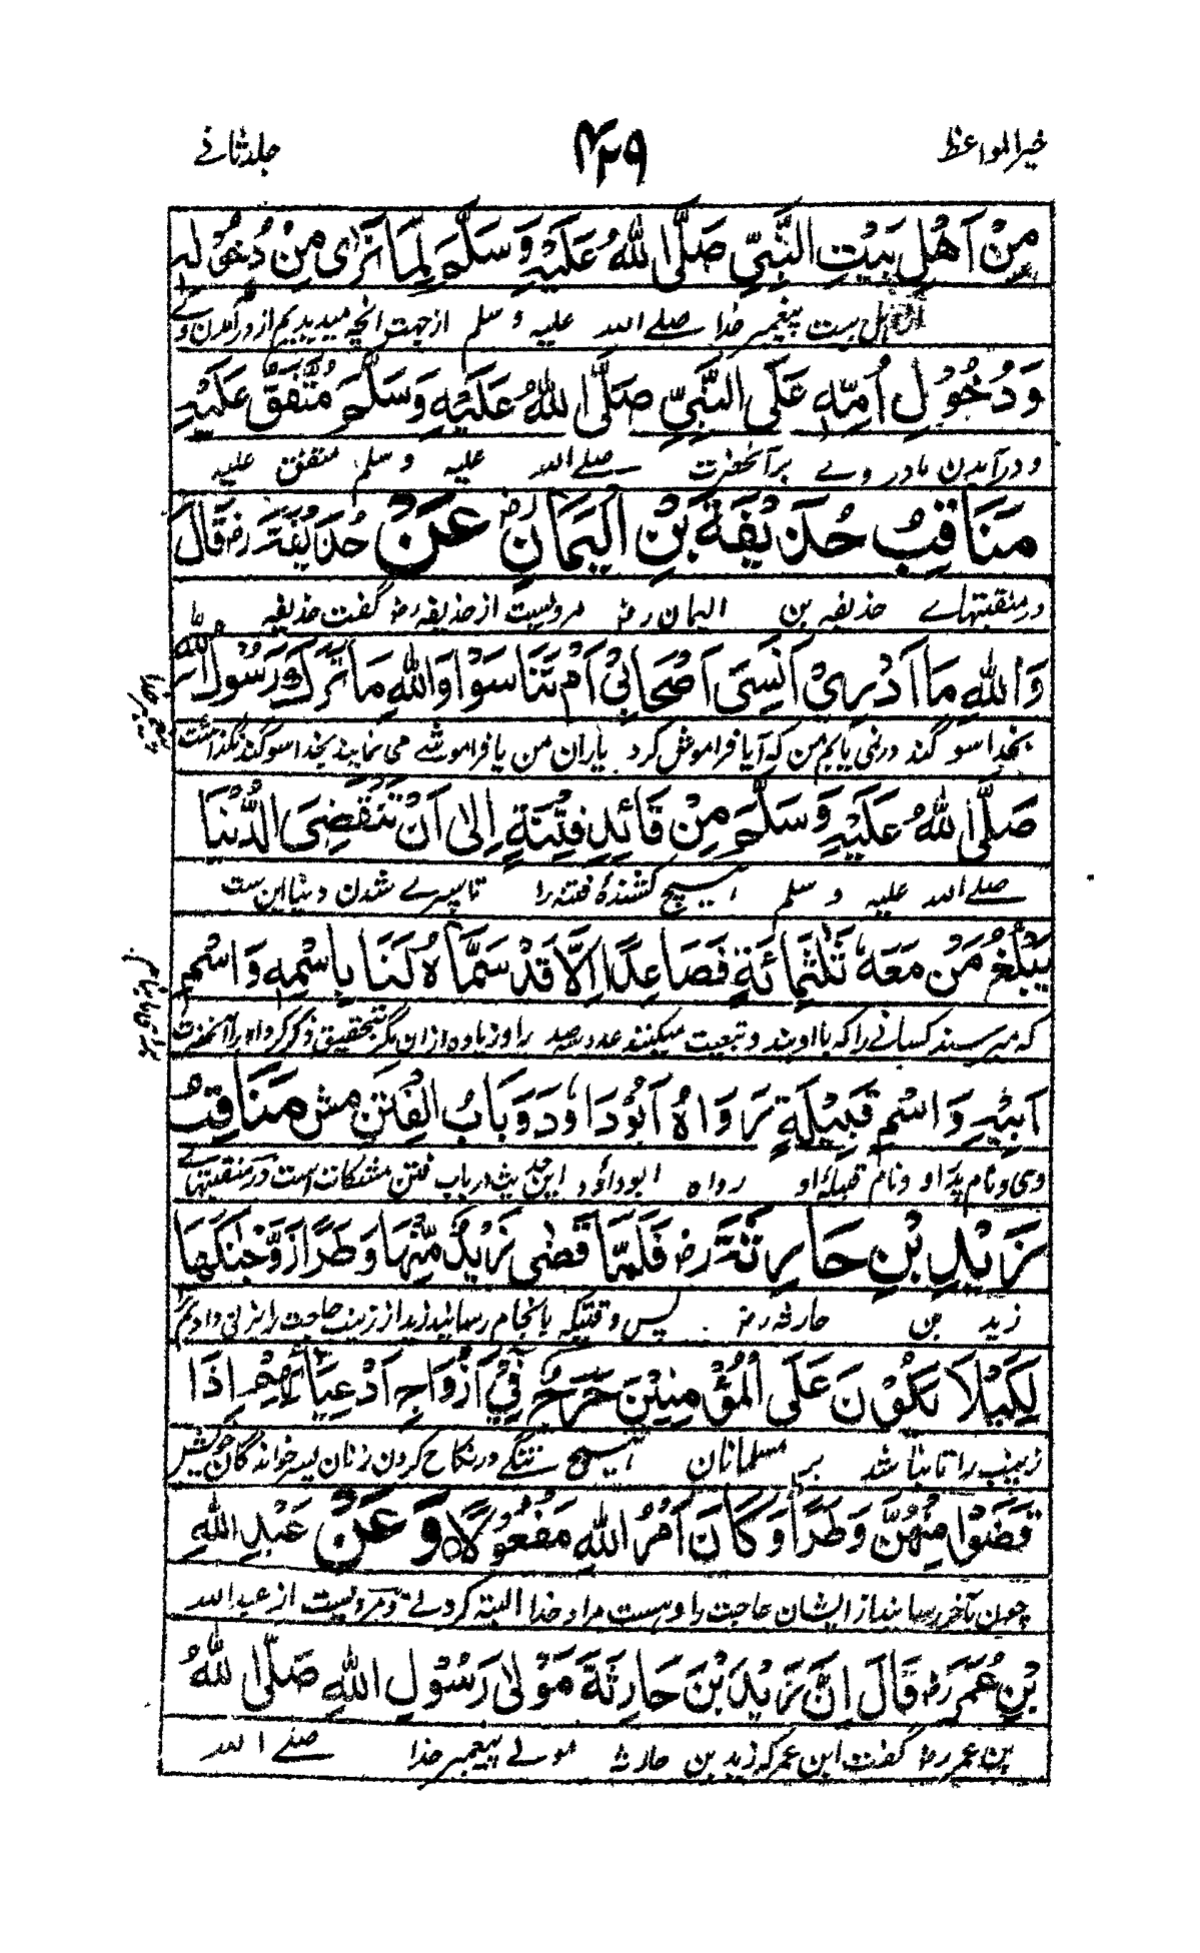 خیرالمواعظ ۴۲۹ جلد ثانے
مِنْ اَهْلِ بَیْتِ النَّبِیِّ صَلَّی اللهُ عَلَیْهِ وَسَلَّمَ لِمَا نَرٰی مِنْ دُخُوْلِهٖ
اہل بیت پیغمبر خدا صلے اللہ علیہ و سلم ازجہت آنچہ میدیدیم از درآمدن وے
وَدُخُوْلِ اُمِّهٖ عَلَی النَّبِیِّ صَلَّی اللهُ عَلَیْهِ وَسَلَّمَ مُتَّفَقٌ عَلَیْهِ
و درآمدن مادر وے برآنحضرت صلے اللہ علیہ و سلم متفق علیہ
مَنَاقِبُ حُذَیْفَةَ بْنِ الْیَمَانِ رض عَنْ حُذَیْفَةَ رض قَالَ
در منقبتہاے حذیفہ بن الیمان رض مرویست از حذیفہ رض گفت حذیفہ
وَاللهِ مَا اَدْرِیْ اَنَسِیَ اَصْحَابِیْ اَمْ تَنَاسَوْا وَاللهِ مَا تَرَكَ رَسُوْلُ اللهِ
بخدا سوگند درنمی یابم من کہ آیا فراموش کرد یاران من یا فراموشے می نمایند بخدا سوگند نگذاشت
پیغمبر خدا
صَلَّی اللهُ عَلَیْهِ وَسَلَّمَ مِنْ قَائِدِ فِتْنَةٍ اِلٰی اَنْ تَنْقَضِیَ الدُّنْیَا
صلے اللہ علیہ و سلم ہیچ کشندۂ فتنہ را تا سپرے شدن دنیا این ست
یَبْلُغُ مَنْ مَعَهٗ ثَلٰثَمِائَةٍ فَصَاعِدًا اِلَّا قَدْ سَمَّاهُ لَنَا بِاسْمِهٖ وَاسْمِ
کہ میرسند کسانے را کہ با اویند و تبعیت میکنند عدد سہ صد را و زیادہ ازان مگر بتحقیق ذکر کرد او را آنحضرت
اَبِیْهِ وَاسْمِ قَبِیْلَةٍ رَوَاهُ اَبُوْدَاؤدَ وَبَابُ الْفِتَنِ مش مَنَاقِبُ
وی و نام پدر او و نام قبیلۂ او رواہ ابوداؤد این حدیث در باب فتن مشکات است در منقبتہاے
زَیْدِ بْنِ حَارِثَةَ رض فَلَمَّا قَضٰی زَیْدٌ مِّنْهَا وَطَرًا زَوَّجْنٰکَهَا
زید بن حارثہ رض پس وقتیکہ بانجام رسانید زید از زینب حاجت را بزنی دادیم ترا
لِکَیْلَا یَکُوْنَ عَلَی الْمُؤْمِنِیْنَ حَرَجٌ فِیْ اَزْوَاجِ اَدْعِیَائِهِمْ اِذَا
زینب را تا نباشد بر مسلمانان ہیچ تنگے در نکاح کردن زنان پسر خواندگان خویش
قَضَوْا مِنْهُنَّ وَطَرًا وَکَانَ اَمْرُ اللهِ مَفْعُوْلًا وَعَنْ عَبْدِ اللهِ
چون بآخر رسانند از ایشان حاجت را و ہست مراد خدا البتہ کردنے و مرویست از عبداللہ
بْنِ عُمَرَ رض قَالَ اِنَّ زَیْدَ بْنَ حَارِثَةَ مَوْلٰی رَسُوْلِ اللهِ صَلَّی اللهُ
بن عمر رض گفت ابن عمر کہ زید بن حارثہ مولے پیغمبر خدا صلے اللہ